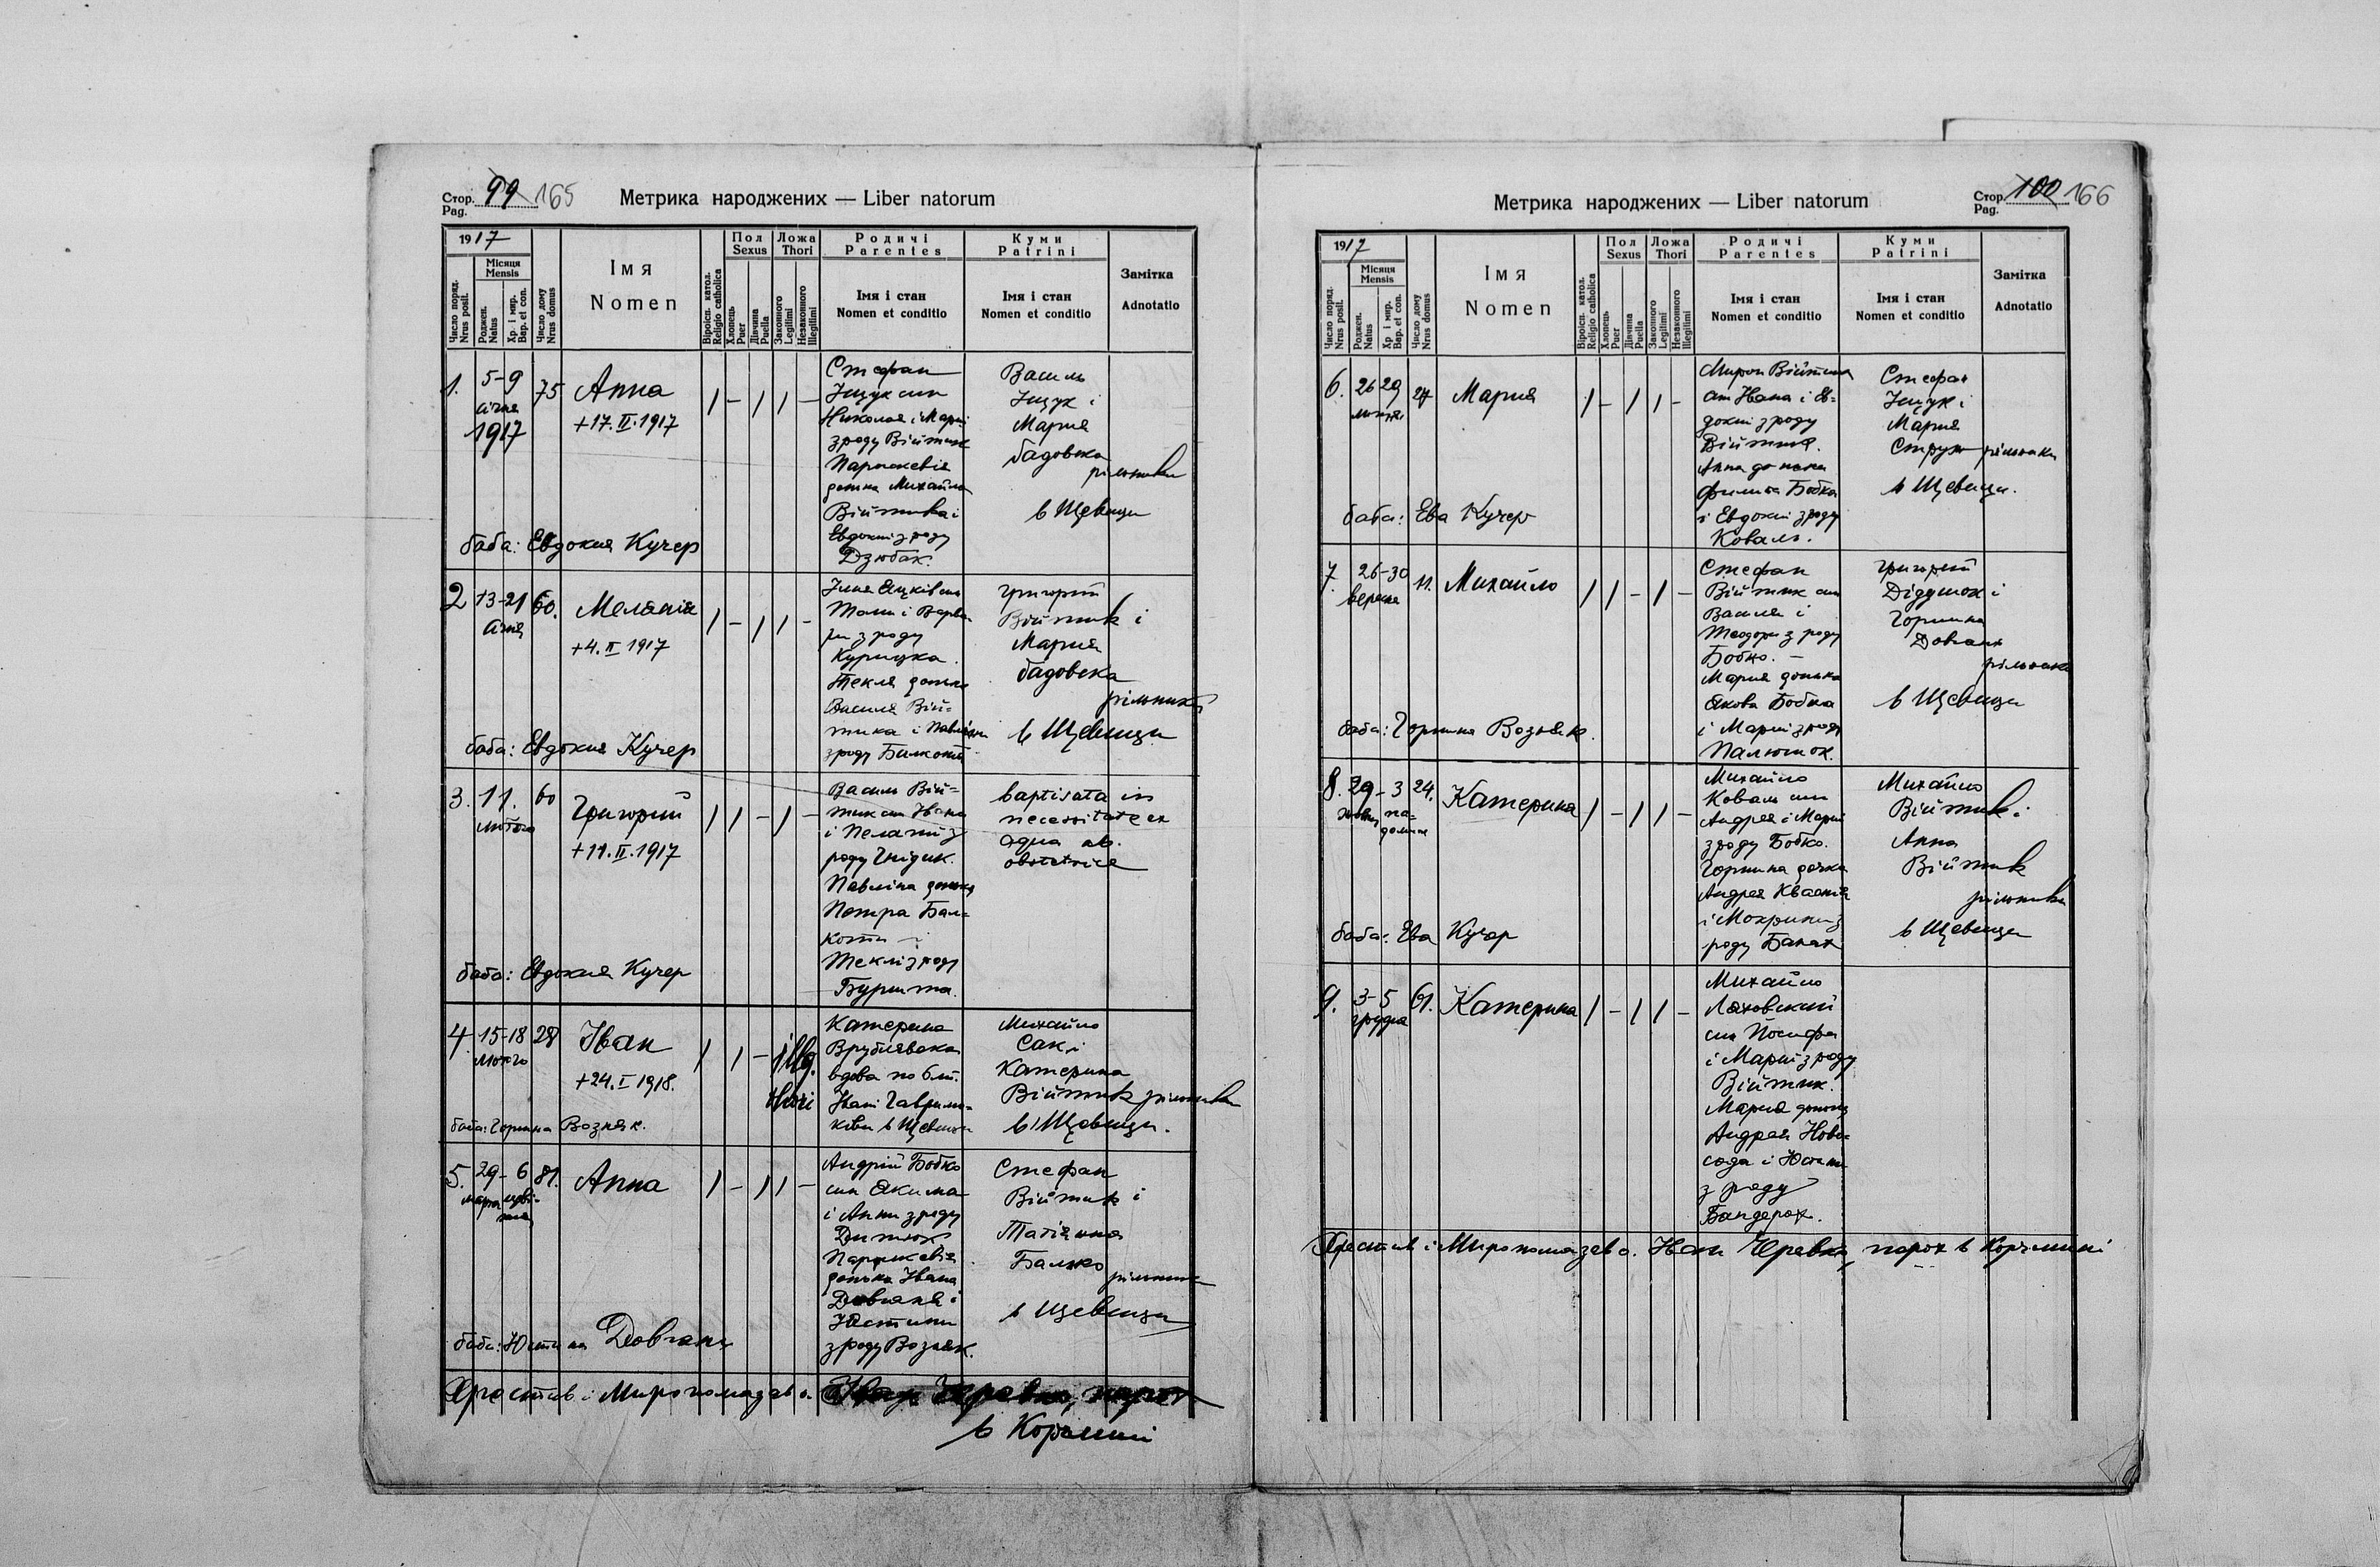 Стор. 99 165
Pag.
Метрика народжених — Liber natorum
1917
Число поряд.
Nrus posit.
Місяця
Mensis
Роджен.
Natus
Хр. і мир.
Bap. et con.
Число дому
Nrus domus
Імя
Nomen
Віроісп. катол.
Religio catholica
Пол
Sexus
Хлопець
Puer
Дівчина
Puella
Ложа
Thori
Законного
Legitimi
Незаконного
Illegitimi
Родичі
Parentes
Імя і стан
Nomen et conditio
Куми
Patrini
Імя і стан
Nomen et conditio
Замітка
Adnotatio
1. 5-9 75 Анна 1 - 1 1 -
січня
1917
+17. II. 1917
Стефан
Іщук син
Николая і Марії
з роду Війтик
Параскевія
донька Михайла
Війтика і
Евдокиї з роду
Дзюбак.
Василь
Іщук і
Мария
Садовска
рільники
в Щевици
баба: Евдокия Кучер
2 13-21 60. Меланія 1 - 1 1 -
січня
+4. II 1917
з роду
Курицка.
Текля донька
Василя Вій-
тика і Павліни
з роду
Григорій
Війтик і
Мария
Садовска
рільники
в Щевици
баба: Евдокия Кучер
3. 11. 60 Григорий 1 1 - 1 -
лютого
+11. II. 1917
Василь Вій-
тик син Івана
і Пелагії з
роду
Павліна донька
Петра Бал-
коти і
Теклі з роду
Буршта.
baptisata in
necessitate ex
aqua ab
obstetrice
баба: Евдокия Кучер
4. 15-18 28 Іван 1 1 - illg.
лютого
thori
+24. I 1918.
Катерина
Врублівска
вдова по бл.
Івані Гаврил-
ків в Щевици
Михайло
Сак і
Катерина
Війтик рільники
в Щевици.
баба: Горпина Возняк.
5. 29-6 81. Анна 1 - 1 1 -
марта цві-
тня
Андрій Бобко
син Якима
і Анни з роду
Параскевія
донька Івана
Довганя і
Юстини
з роду Возняк.
Стефан
Війтик і
Татіянна
Балко
рільники
в Щевици
баба: Юстина Довгань
Хрестив і Миропомазав о. Іван Черевко, парох
в Корчмині
Метрика народжених — Liber natorum
Стор. 100 166
Pag.
1917
Число поряд.
Nrus posit.
Місяця
Mensis
Роджен.
Natus
Хр. і мир.
Bap. et con.
Число дому
Nrus domus
Імя
Nomen
Віроісп. катол.
Religio catholica
Пол
Sexus
Хлопець
Puer
Дівчина
Puella
Ложа
Thori
Законного
Legitimi
Незаконного
Illegitimi
Родичі
Parentes
Імя і стан
Nomen et conditio
Куми
Patrini
Імя і стан
Nomen et conditio
Замітка
Adnotatio
6. 26 29 27 Мария 1 - 1 1 -
липня
Мирон Війтик
син Івана і Ев-
докиї з роду
Війтик.
Анна донька
Филипа Бобка
і Евдокиї з роду
Коваль.
Стефан
Іщук і
Мария
рільники
в Щевици.
баба: Ева Кучер
7. 26-30 11. Михайло 1 1 - 1 -
вересня
Стефан
Війтик син
Василя і
Теодори з роду
Бобко. —
Мария донька
Якова Бобка
і Марії з роду
Палюшок.
Григорий
Дідушок і
Горпина
Довгань
рільники
в Щевици
баба: Горпина Возняк.
8. 29-3 24. Катерина 1 - 1 1 -
жовт. па-
долиста
Михайло
Коваль син
Андрея і Марії
з роду Бобко.
Горпина дочка
Андрея
і Мокрини з
роду
Михайло
Війтик і
Анна
Війтик
рільники
в Щевици
баба: Ева Кучер
9. 3-5 61. Катерина 1 - 1 1 -
грудня
Михайло
Ляховский
син Йосифа
і Марії з роду
Війтик.
Мария донька
Андрея Ново-
сода і Юстини
з роду
Бандерок.
Хрестив і Миропомазав о. Іван Черевко, парох в Корчмині